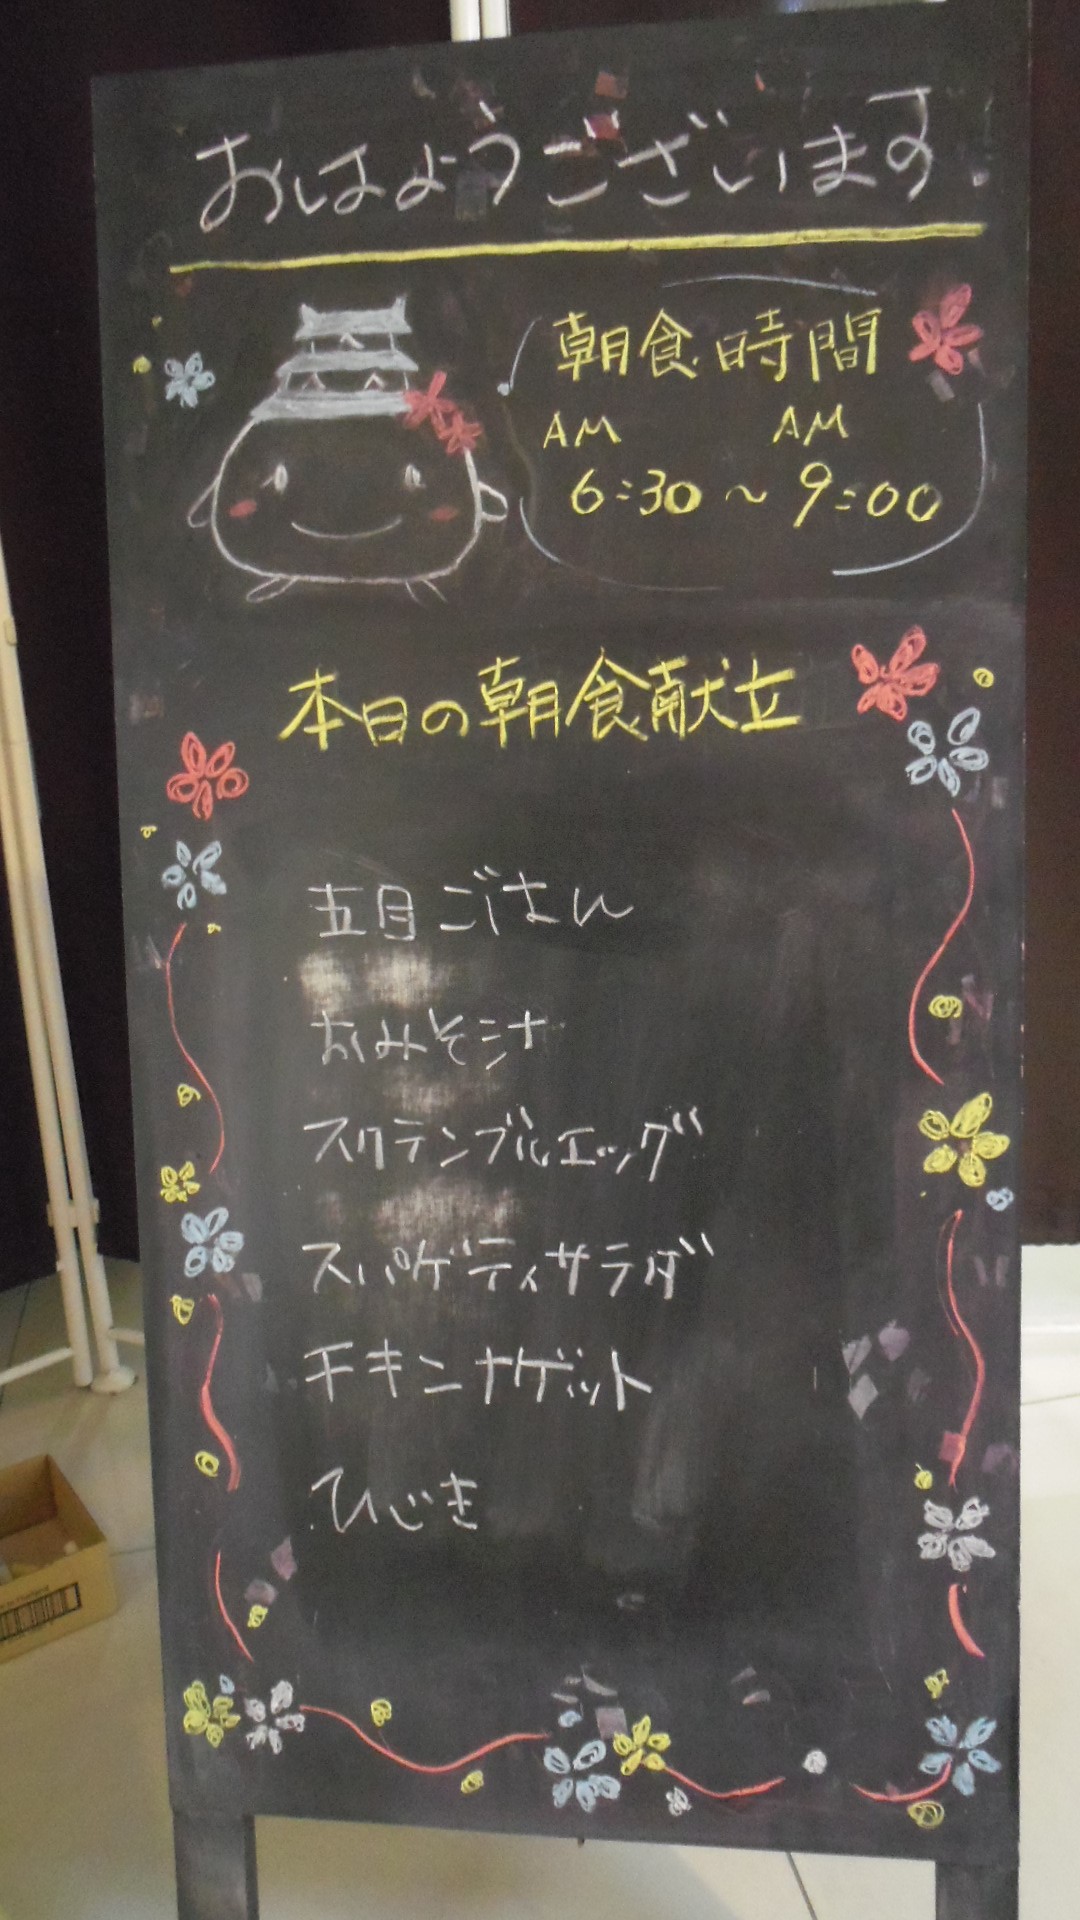 おはようございます
朝食時間
AM AM
6:30～9:00
本日の朝食献立
五目ごはん
おみそ汁
スクランブルエッグ
スパゲティサラダ
チキンナゲット
ひじき